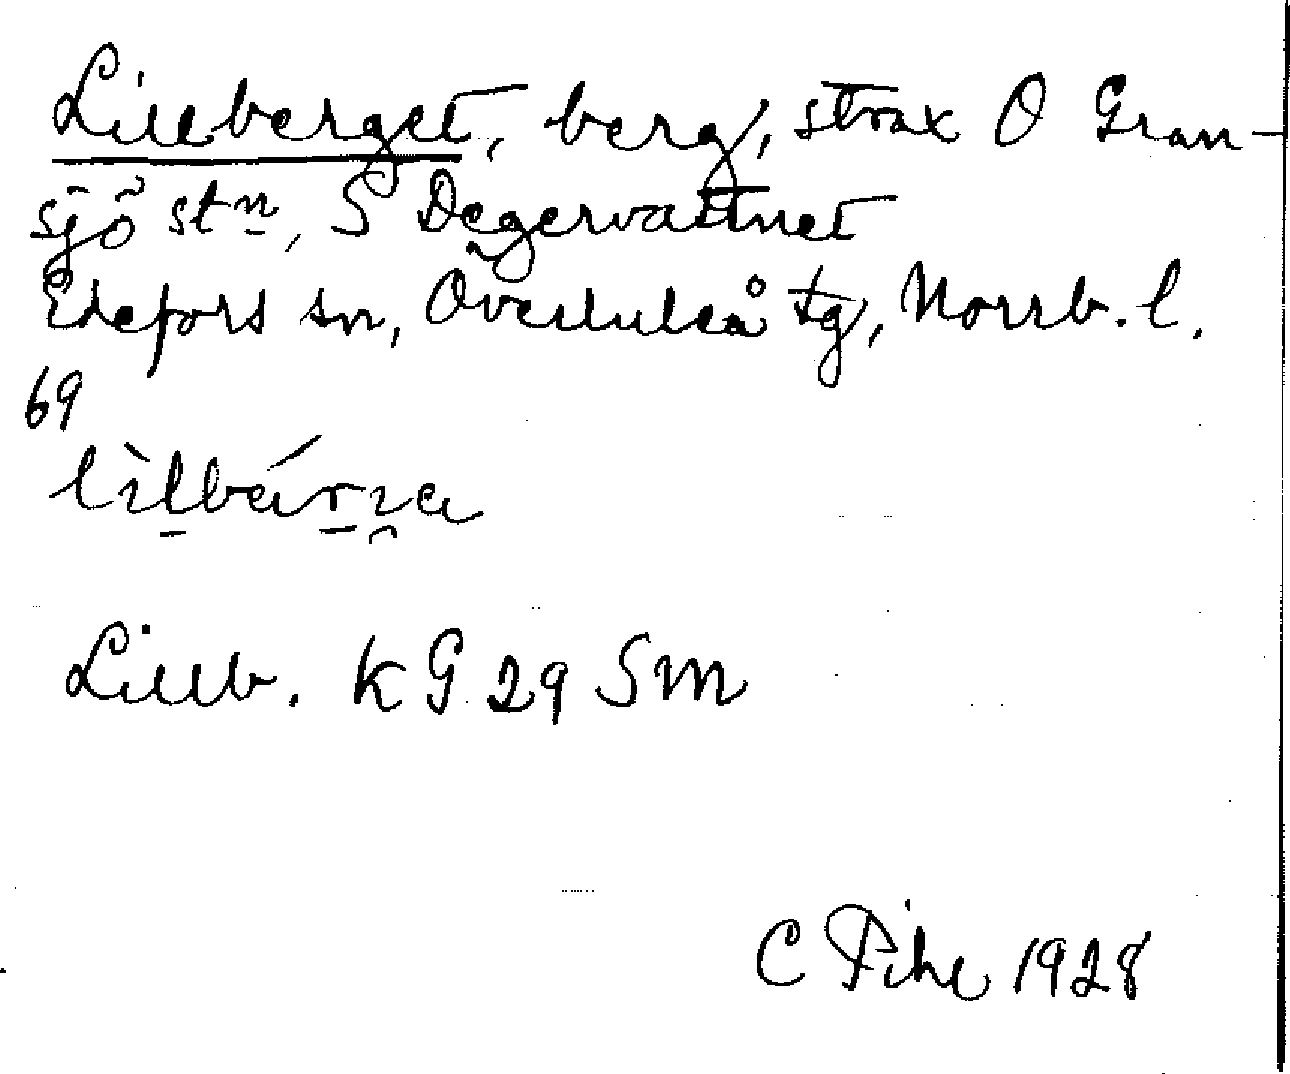 Lilleberget, berg, strax O Gran-
sjö stn, S Degervattnet
Edefors sn, Överluleå tg, Norrb. l.
69
lìlbárɪa
Lillb. KG 29 SM
C Pihl 1928